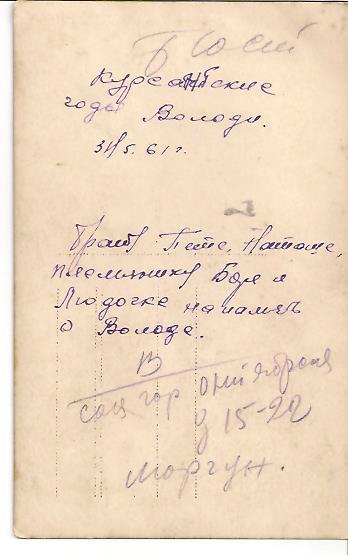 Курсантские
годы Володи.
31/5. 61 г.
Брату Пете, Наташе,
племяннику Боре и
Людочке на память
о Володе.
В
соц гор
15-22
Моргун.